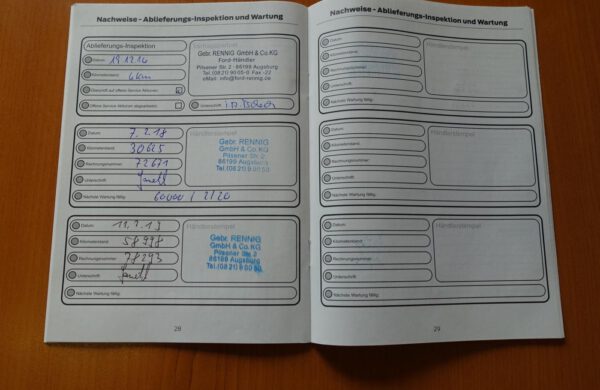 Nachweise - Ablieferungs-Inspektion und Wartung
Ablieferungs-Inspektion
Datum: 19.12.16
Kilometerstand: 6 km
Überprüft auf offene Service Aktionen:
Offene Service Aktionen abgearbeitet:
Gebr. RENNIG GmbH & Co. KG
-Ford-Händler-
Pilsener Str. 2 · 86199 Augsburg
Tel. (08 21) 9 00 05-0 Fax -22
eMail: info@ford-rennig.de
Unterschrift:
Datum: 7.2.18
Kilometerstand: 30625
Rechnungsnummer: 72671
Unterschrift:
Nächste Wartung fällig: 60000 / 2/20
Händlerstempel
Gebr. RENNIG
GmbH & Co. KG
Pilsener Str. 2
86199 Augsburg
Tel. (08 21) 9 00 50
Datum:
Kilometerstand: 58998
Rechnungsnummer: 78293
Unterschrift:
Nächste Wartung fällig:
Händlerstempel
Gebr. RENNIG
GmbH & Co. KG
Pilsener Str. 2
86199 Augsburg
Tel. (08 21) 9 00 50
28
Nachweise - Ablieferungs-Inspektion und Wartung
Datum:
Kilometerstand:
Rechnungsnummer:
Unterschrift:
Nächste Wartung fällig:
Händlerstempel
Datum:
Kilometerstand:
Rechnungsnummer:
Unterschrift:
Nächste Wartung fällig:
Händlerstempel
Datum:
Kilometerstand:
Rechnungsnummer:
Unterschrift:
Nächste Wartung fällig:
Händlerstempel
29